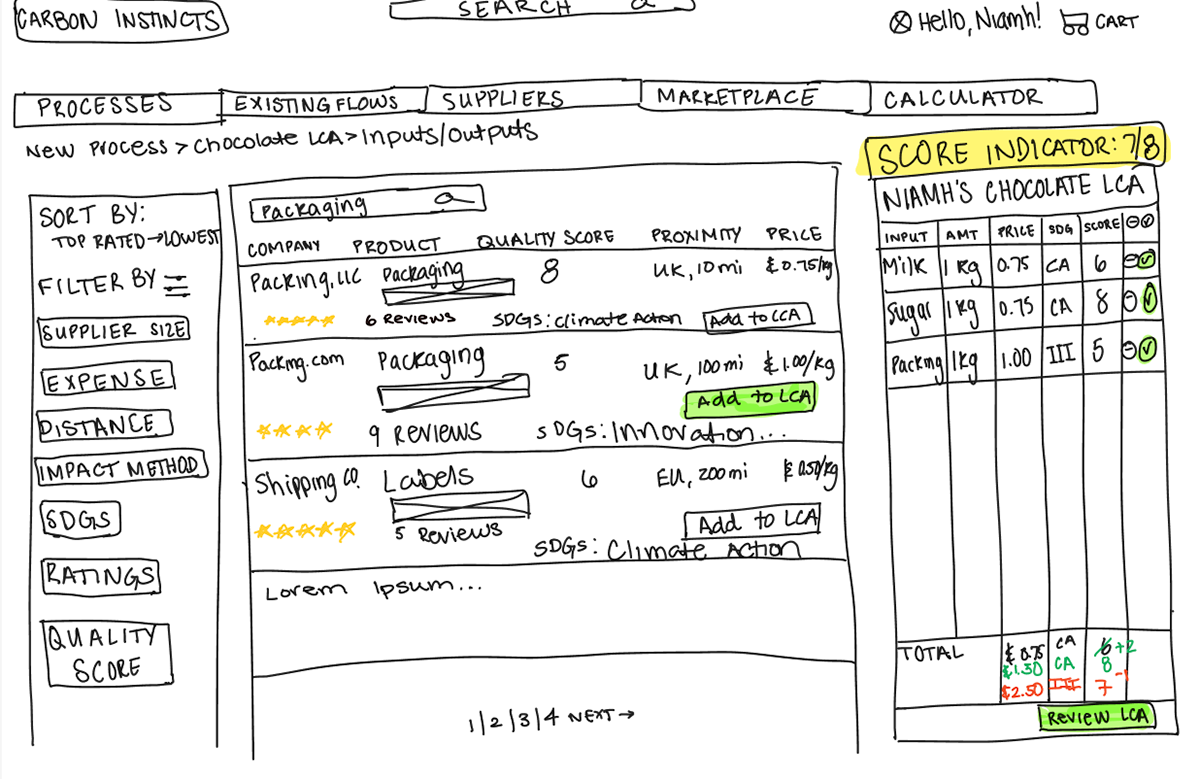 CARBON INSTINCTS
SEARCH
Hello, Niamh!
CART
PROCESSES
EXISTING FLOWS
SUPPLIERS
MARKETPLACE
CALCULATOR
New Process > Chocolate LCA > Inputs/Outputs
SORT BY:
TOP RATED → LOWEST
FILTER BY
SUPPLIER SIZE
EXPENSE
DISTANCE
IMPACT METHOD
SDGS
RATINGS
QUALITY
SCORE
Packaging
COMPANY PRODUCT QUALITY SCORE PROXIMITY PRICE
Packing, LLC Packaging 8 UK, 10 mi £0.75/kg
6 Reviews SDGS: Climate Action Add to LCA
Packing.com Packaging 5 UK, 100 mi £1.00/kg
Add to LCA
9 Reviews SDGS: Innovation...
Shipping Co. Labels 6 EU, 200 mi £0.50/kg
5 Reviews Add to LCA
SDGS: Climate Action
Lorem Ipsum...
1|2|3|4 NEXT →
SCORE INDICATOR: 7/8
NIAMH'S CHOCOLATE LCA
INPUT AMT PRICE SDG SCORE
Milk 1 Kg 0.75 CA 6
Sugar 1 Kg 0.75 CA 8
Packing 1 Kg 1.00 III 5
TOTAL £0.75 CA 6 +2
£1.30 CA 8
$2.50 III 7 -1
REVIEW LCA